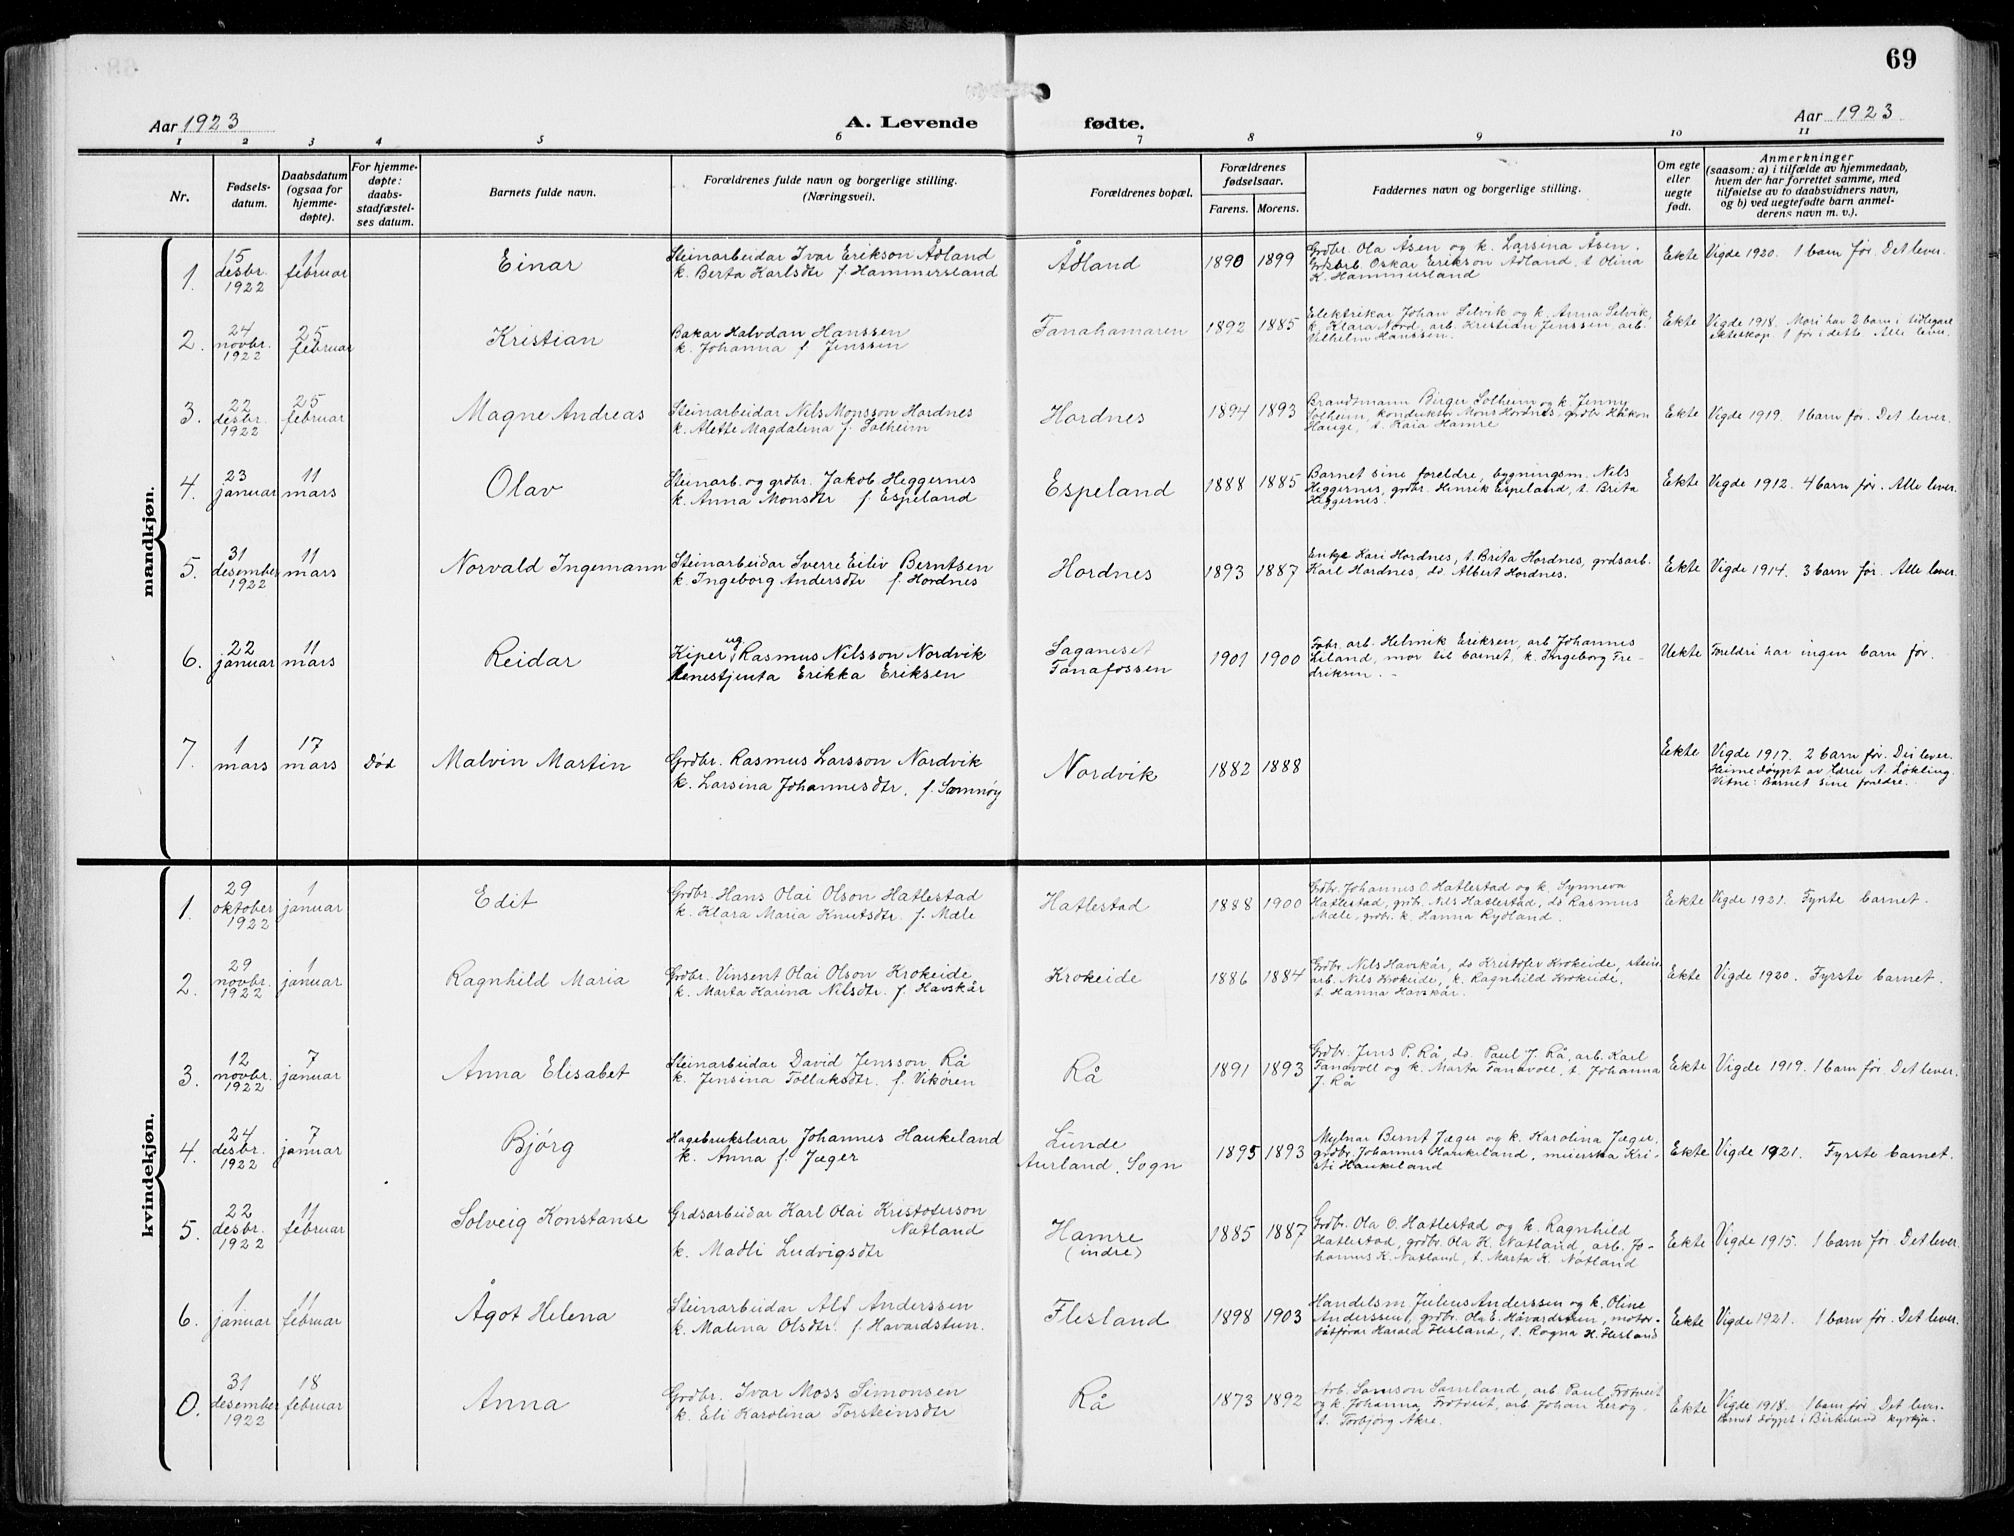 69
Aar 1923
A. Levende fødte.
Aar 1923
1 2 3 4 5 6 7 8 9 10 11
Nr.
Fødsels-
datum.
Daabsdatum
(ogsaa for
hjemme-
døpte).
For hjemme-
døpte:
daabs-
stadfæstel-
ses datum.
Barnets fulde navn.
Forældrenes fulde navn og borgerlige stilling.
(Næringsvei).
Forældrenes bopæl.
Forældrenes
fødselsaar.
Farens. Morens.
Faddernes navn og borgerlige stilling.
Om egte
eller
uegte
født.
Anmerkninger
(saasom: a) i tilfælde av hjemmedaab,
hvem der har forrettet samme, med
tilføielse av to daabsvidners navn,
og b) ved uegtefødte barn anmel-
derens navn m. v.).
mandkjøn.
1.
15
desbr.
1922
11
februar
Einar
Steinarbeidar Ivar Erikson Ådland
k. Berta Karlsdtr f. Hammersland
Ådland
1890 1899
Grdbr. Ola Åsen og k. Larsina Åsen.
Grdsarb. Oskar Erikson Ådland, t. Olina
K. Hammersland
Ekte
Vigde 1920. 1 barn før. Det lever.
2.
24
novbr.
1922
25
februar
Kristian
Bakar Halvdan Hanssen
k. Johanna f. Jenssen
Fanahamaren
1892 1885
Elektrikar Johan Selvik og k. Anna Selvik,
k. Klara Nord, arb. Kristian Jenssen, arb.
Vilhelm Hanssen.
Ekte
Vigde 1918. Mori har 2 barn i tidlegare
ekteskap. 1 før i dette. Alle lever.
3.
22
desbr.
1922
25
februar
Magne Andreas
Steinarbeidar Nils Monsson Hordnes
k. Alette Magdalena f. Solheim
Hordnes
1894 1893
Brandsmann Birger Solheim og k. Jenny
Solheim, konduktør Mons Hordnes, grdbr Håkon
Hauge, t. Raia Hamre
Ekte
Vigde 1919. 1 barn før. Det lever.
4.
23
januar
11
mars
Olav
Steinarb. og grdbr. Jakob Heggernes
k. Anna Monsdtr f. Espeland
Espeland
1888 1885
Barnet sine foreldre, bygningsm. Nils
Heggernes, grdbr. Henrik Espeland, t. Brita
Heggernes.
Ekte
Vigde 1912. 4 barn før. Alle lever.
5.
31
desember
1922
11
mars
Norvald Ingemann
Steinarbeidar Sverre Eiliv Berntsen
k. Ingeborg Andersdtr f. Hordnes
Hordnes
1893 1887
Enkje Kari Hordnes, t. Brita Hordnes, grdsarb.
Karl Hordnes, do. Albert Hordnes.
Ekte
Vigde 1914. 3 barn før. Alle lever.
6.
22
januar
11
mars
Reidar
Kiper ug. Rasmus Nilsson Nordvik
tenestjenta Erikka Eriksen
Saganeset
Fanafossen
1901 1900
Fabr. arb. Helmik Eriksen, arb. Johannes
Liland, mor til barnet, k. Ingeborg Fre-
driksen.
Uekte
Foreldri har ingen barn før.
7.
1
mars
17
mars
Död
Malvin Martin
Grdbr. Rasmus Larsson Nordvik
k. Larsina Johannesdtr. f. Samnøy
Nordvik
1882 1888
Eekte
Vigde 1917. 2 barn før. Dei lever.
Heimedøypt av lærer A. Løkling.
Vitne: Barnet sine foreldre.
kvindekjøn.
1.
29
oktober
1922
1
januar
Edit
Grdbr. Hans Olai Olson Hatlestad
k. Klara Maria Knutsdtr. f. Mæle
Hatlestad
1888 1900
Grdbr. Johannes O. Hatlestad og k. Synneva
Hatlestad, grdbr. Nils Hatlestad, do Rasmus
Mæle, grdbr. k. Hanna Rydland.
Ekte
Vigde 1921. Fyrste barnet.
2.
29
novbr.
1922
1
januar
Ragnhild Maria
Grdbr. Vinsent Olai Olson Krokeide
k. Marta Karina Nilsdtr. f. Havskår
Krokeide
1886 1884
Grdbr. Nils Havskår, do Kristofer Krokeide, stein-
arb. Nils Krokeide, k. Ragnhild Krokeide,
t. Hanna Havskår.
Ekte
Vigde 1920. Fyrste barnet.
3.
12
novbr.
1922
7
januar
Anna Elisabet
Steinarbeidar David Jensson Rå
k. Jensina Tollaksdtr. f. Vikøren
Rå
1891 1893
Grdbr. Jens P. Rå, do. Paul J. Rå, arb. Karl
Fanavoll og k. Marta Fanavoll, t. Johanna
J. Rå
Ekte
Vigde 1919. 1 barn før. Det lever.
4.
24
desbr.
1922
7
januar
Bjørg
Hagebrukslærar Johannes Haukeland
k. Anna f. Jæger
Lunde
Aurland, Sogn
1895 1893
Mylnar Bernt Jæger og k. Karolina Jæger,
grdbr. Johannes Haukeland, meierska Kri-
sti Haukeland
Ekte
Vigde 1921. Fyrste barnet.
5.
22
desbr.
1922
11
februar
Solveig Konstanse
Grdsarbeidar Karl Olai Kristoferson
Natland
k. Madli Ludvigsdtr
Hamre
(indre)
1885 1887
Grdbr. Ola O. Hatlestad og k. Ragnhild
Hatlestad, grdbr. Ola K. Natland, arb. Jo-
hannes K. Natland, t. Marta K. Natland
Ekte
Vigde 1915. 1 barn før. Det lever.
6.
1
januar
11
februar
Ågot Helena
Steinarbeidar Alf Anderssen
k. Malena Olsdtr. f. Havardstun.
Flesland
1898 1903
Handelsm. Julius Anderssen og k. Oline
Anderssen, grdbr. Ola E. Håvardstun, motor-
båtførar Harald Flesland, t. Ragna H. Flesland
Ekte
Vigde 1921. 1 barn før. Det lever.
0.
31
desember
1922
18
februar
Anna
Grdbr. Ivar Moss Simonsen
k. Eli Karolina Torsteinsdtr
Rå
1873 1892
Arb. Samson Samland, arb Paul Frotveit
og k. Johanna Frotveit, arb Johan Lerøg,
t. Torbjørg Akre.
Ekte
Vigde 1918. 1 barn før. Det lever.
Barnet døypt i Birkeland kyrkja.